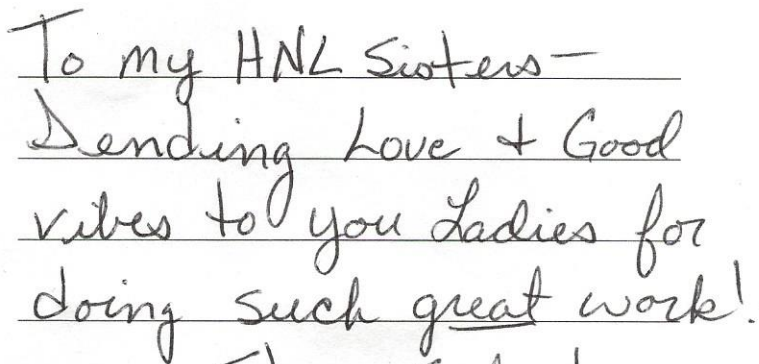 To my HNL Sisters—
Sending Love + Good
vibes to you Ladies for
doing such great work!